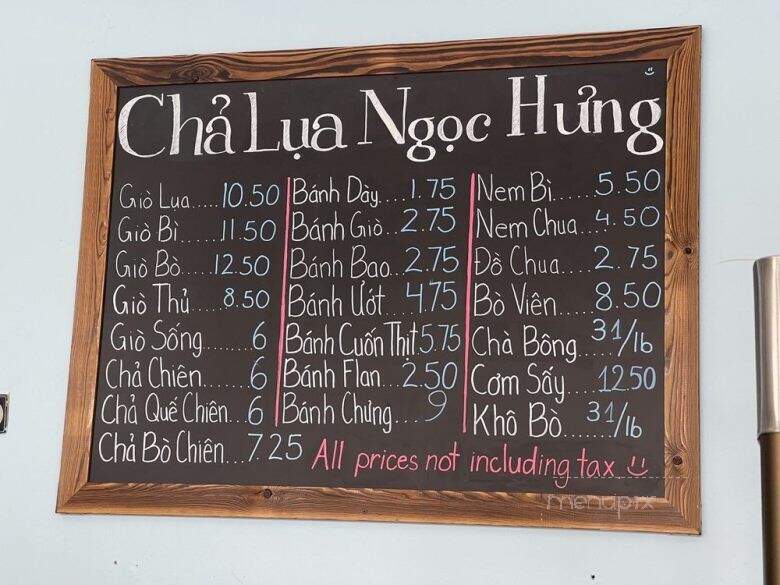 Chả Lụa Ngọc Hưng
Giò Lụa.....10.50
Giò Bì......11.50
Giò Bò.....12.50
Giò Thủ....8.50
Giò Sống.......6
Chả Chiên......6
Chả Quế Chiên..6
Chả Bò Chiên...7.25
Bánh Dày....1.75
Bánh Giò..2.75
Bánh Bao..2.75
Bánh Ướt..4.75
Bánh Cuốn Thịt.5.75
Bánh Flan..2.50
Bánh Chưng...9
Nem Bì......5.50
Nem Chua..4.50
Đồ Chua....2.75
Bò Viên....8.50
Chà Bông...31/lb
Cơm Sấy....12.50
Khô Bò......31/lb
All prices not including tax
menupix